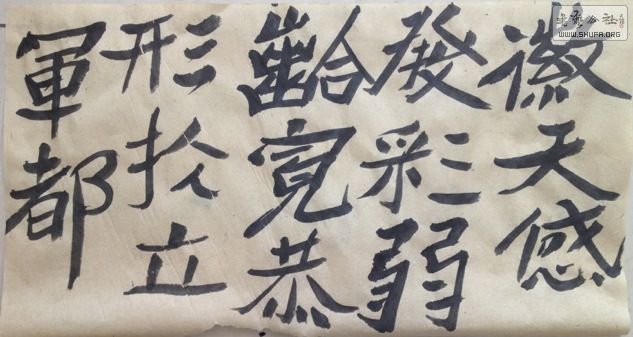 徽天感
發彩弱
齡寬恭
形扵立
軍都
書藝公社
WWW.SHUFA.ORG